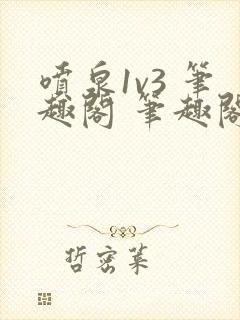 喷泉1v3 笔
趣阁 笔趣阁
哲密莱